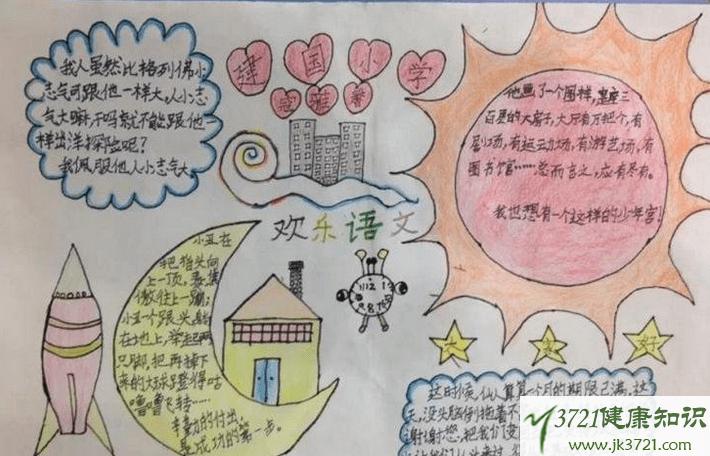 我人虽然比格列佛小
志气可跟他一样大。人小志
气大嘛，干吗就不能跟他一
样出洋探险呢？
我佩服他人小志气大
建国小学
欢乐语文
他画了一个图样，
百层的大房子，大厅有万把个，有
剧场，有运动场，有游艺场，有
图书馆……总而言之，应有尽有。
我也想有一个这样的少年宫！
小丑在
把指头向
上一顶，
傲往上一蹦；
小丑一个跟头
在地上，举起两
只脚，把再掉下
来的大球蹬得咕
噜噜飞转……
辛勤的付出，
是成功的第一步。
大 家 好
这时候，仙人算算一个月的期限已满，这
天，没头脑倒拖着不
谢谢您，把我们变
3721健康知识
www.jk3721.com